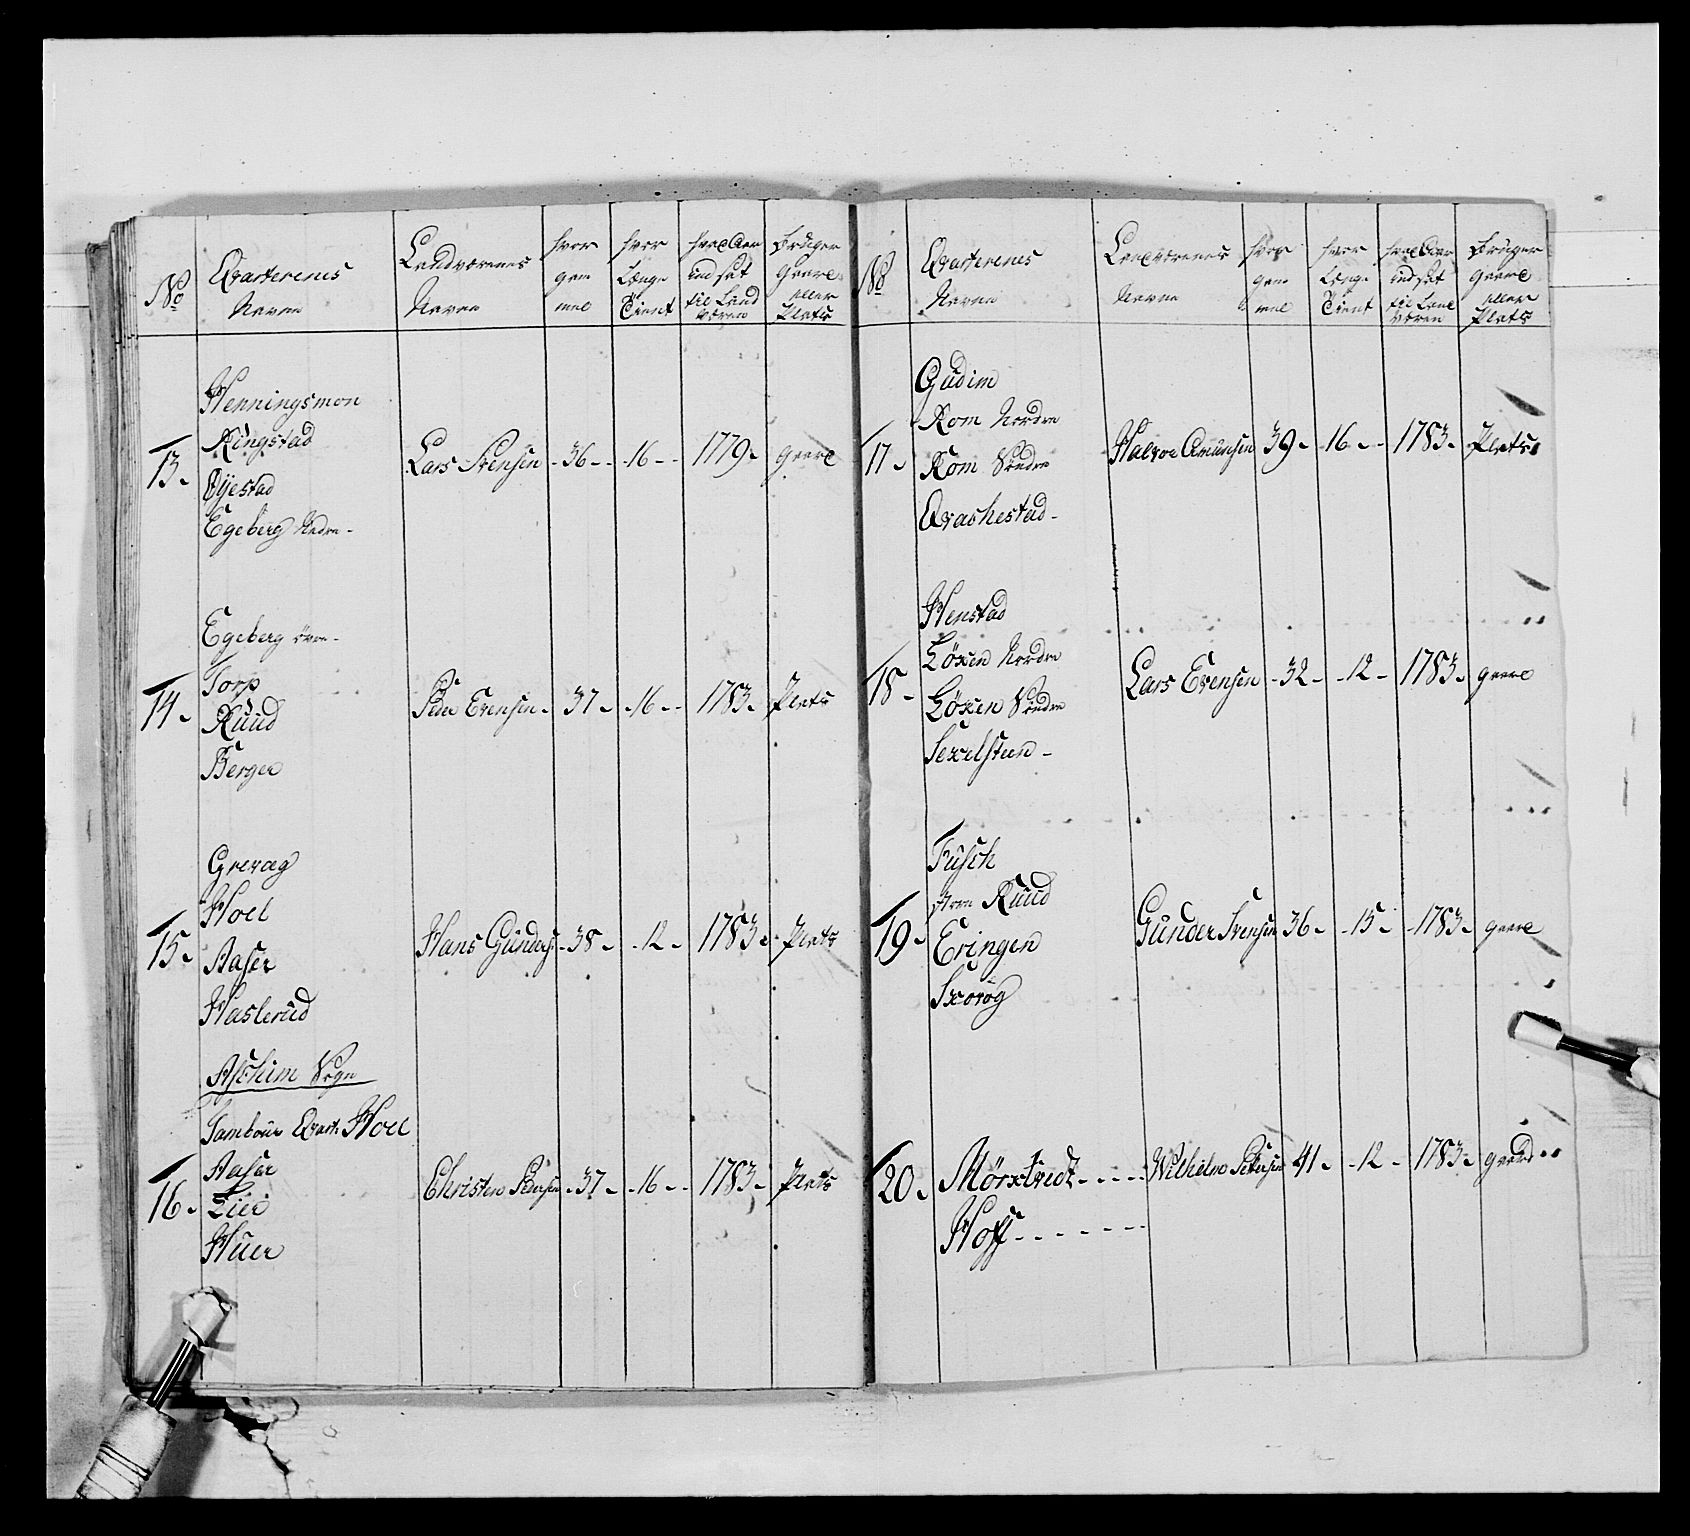 No
Qvarterenes
Navne
Landværenes
Navne
hvor
gam
mel
hvor
Længe
Tient
hvad Aar
ind sat
til Land
væren
Bruger
Gaard
eller
Plads
13.
Henningsmon
Ringstad
Øjestad
Egeberg Nedre
Lars Svensen
36
16
1779
Gaard
14.
Egeberg øvre
Torp
Ruud
Berger
Peder Evensen
37
16
1783
Plats
15.
Grevæg
Hoel
Aaser
Haslerud
Hans Gunders
38
12
1783
Plats
Aschim Sogn
Tambour Qvart. Hoel
16.
Aaser
Lier
Huer
Christen Pedersen
37
16
1783
Plats
No
Qvarterenes
Navne
Landværenes
Navne
hvor
gam
mel
hvor
Længe
Tient
hvad Aar
ind sat
til Land
væren
Bruger
Gaard
eller
Plats
17.
Gudim
Rom Nordre
Rom Søndre
Qvashestad
Halvor Amundsen
39
16
1783
Plats
18.
Henstad
Løxen Nordre
Løxen Søndre
Sexelsteen
Lars Evensen
32
12
1783
gaard
19.
Fusch
store Ruud
Eringen
Skorøg
Gunder Svensen
36
15
1783
gaard
20.
Mørxtvedt
Hoff
Wilhelm Petersen
41
12
1783
gaard